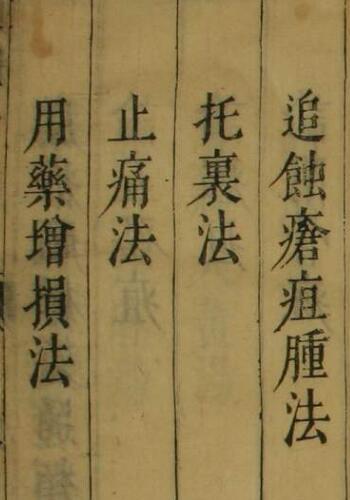 追蝕瘡疽腫法
托裏法
止痛法
用藥增損法